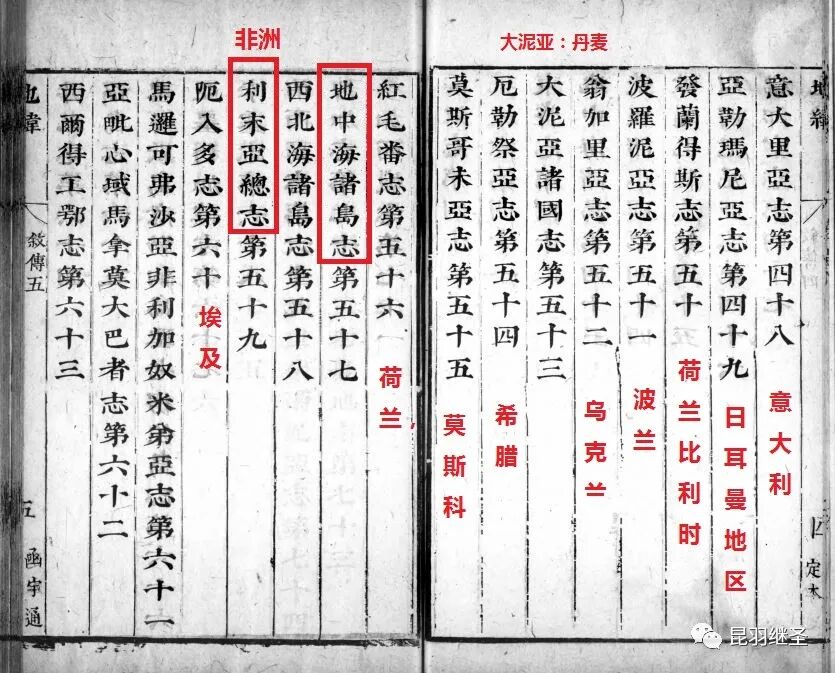 非洲
大泥亚：丹麦
地緯
定本
意大里亞志第四十八
意大利
亞勒瑪尼亞志第四十九
日耳曼地区
發蘭得斯志第五十
荷兰比利时
波羅泥亞志第五十一
波兰
翁加里亞志第五十二
乌克兰
大泥亞諸國志第五十三
厄勒祭亞志第五十四
希腊
莫斯哥未亞志第五十五
莫斯科
紅毛番志第五十六
荷兰,
地中海諸島志第五十七
西北海諸島志第五十八
利未亞總志第五十九
阨入多志第六十
埃及
馬邏可弗沙亞非利加奴米第亞志第六十一
亞毗心域馬拿莫大巴者志第六十二
西爾得工鄂志第六十三
地緯
敘傳五
五
函宇通
昆羽继圣